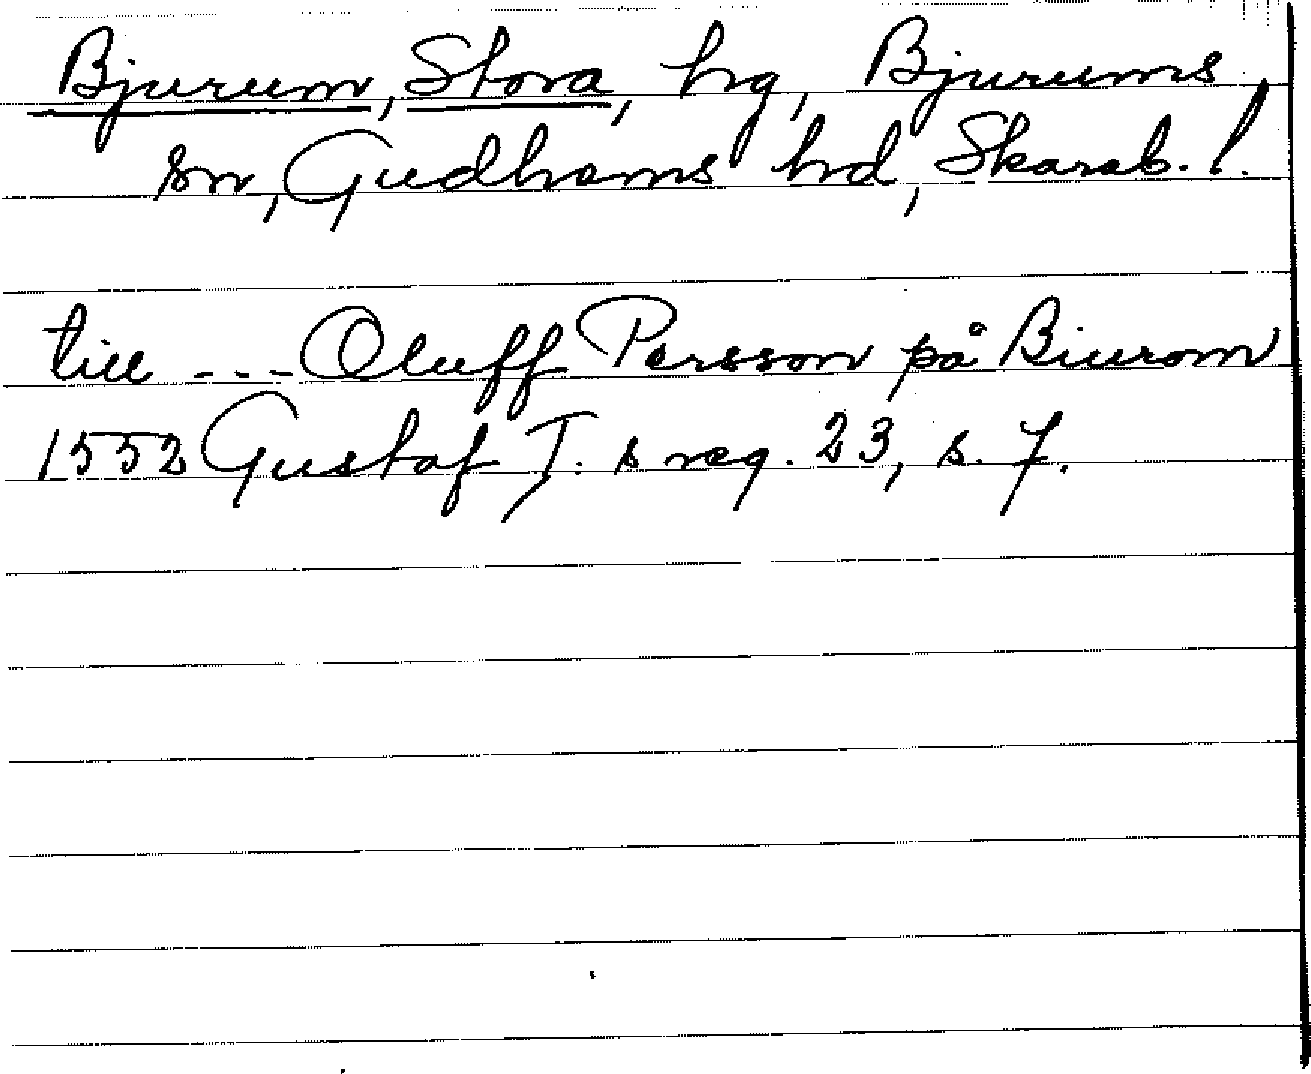 Bjurum, Stora, hg, Bjurums
sn, Gudhems hd, Skarab. l.
till --- Oluff Persson på Biurom
1552 Gustaf I. s reg. 23, s. 7.